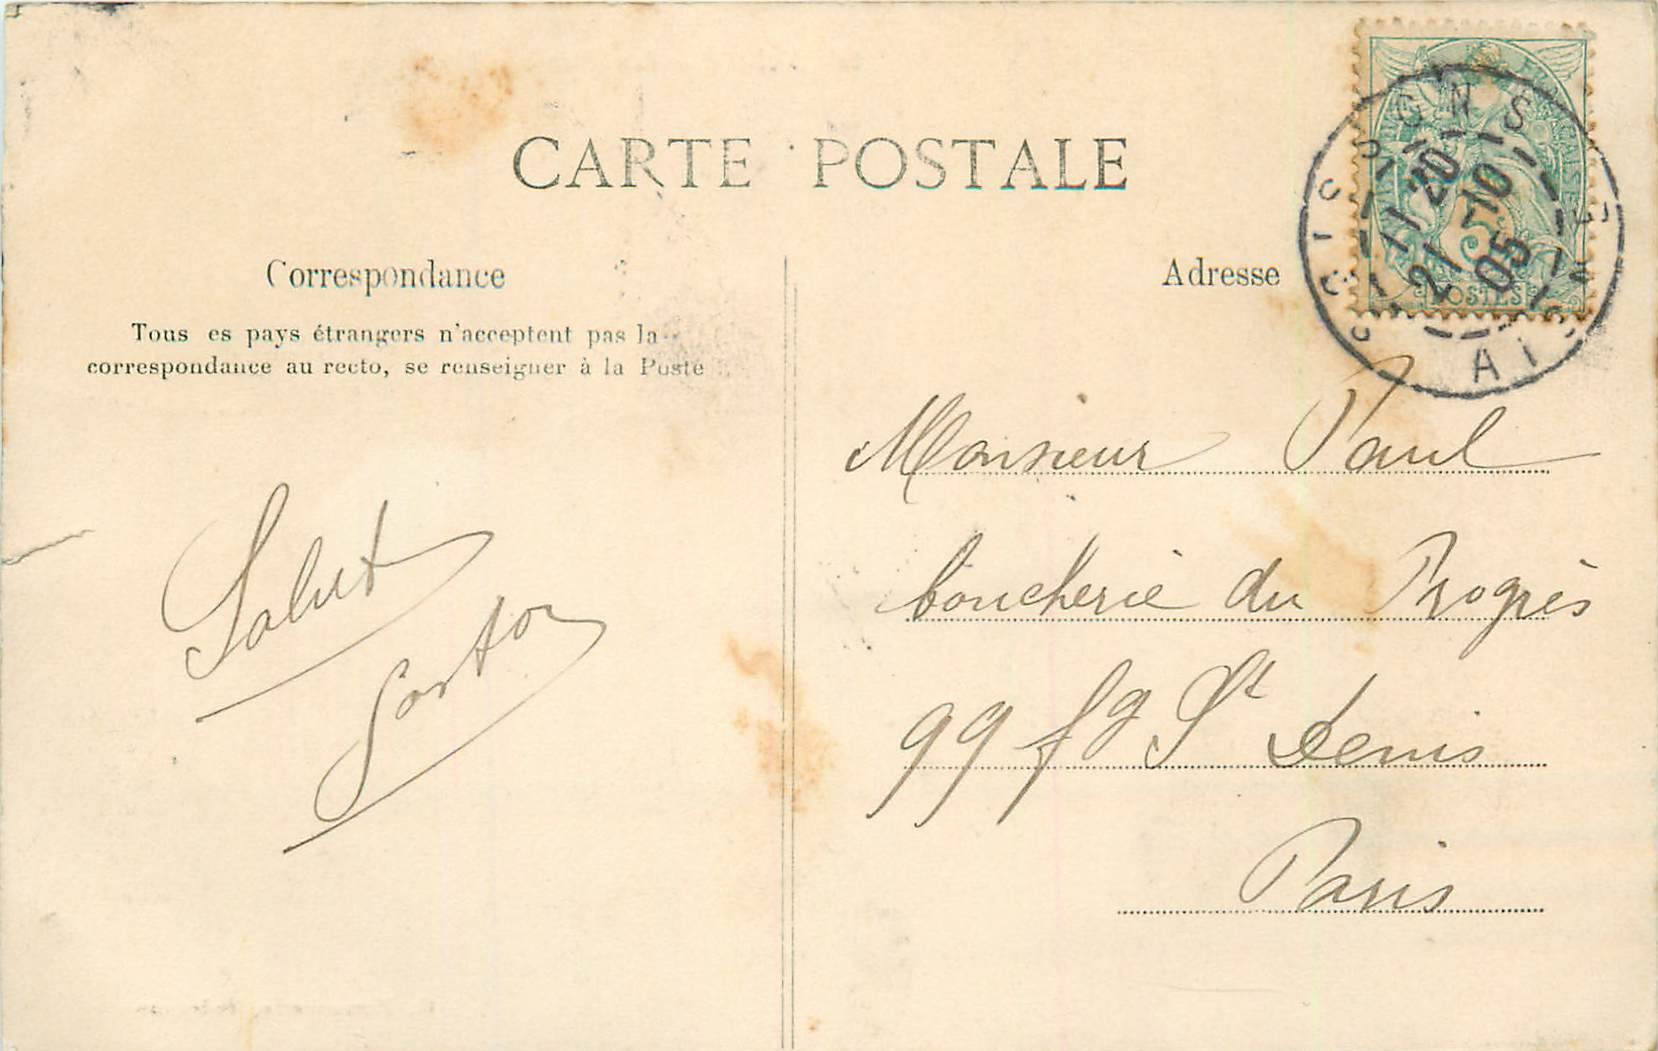 CARTE POSTALE
Correspondance
Tous es pays étrangers n'acceptent pas la
correspondance au recto, se renseigner à la Poste
Salut
Adresse
11 20
21 -10
05
AISNE
5
POSTES
Monsieur Paul
boucherie du Progrès
99 fg St Denis
Paris